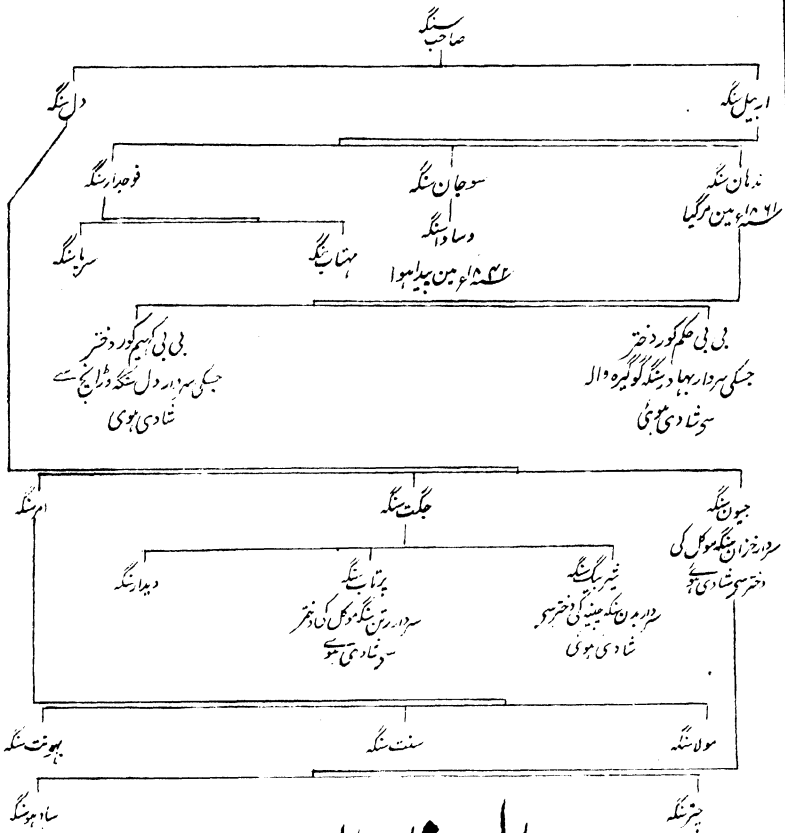 صاحب سنگه
اربیل سنگه
دل سنگه
ندہان سنگه
سنہ ۱۸۶۱ء مین مرگیا
سوجان سنگه
فوجدار سنگه
وساوا سنگه
سنہ ۱۸۴۲ء مین پیدا ہوا
مہتاب سنگه
سرہا سنگه
بی بی حکم کور دختر
جسکی سردار بہادر سنگه گوگیرہ والہ
سی شادی ہوئی
بی بی کہیم کور دختر
جسکی سردار دل سنگه وڑایچ سے
شادی ہوی
جیون سنگه
سردار خزان سنگه موکل کی
دختر سی شادی ہوے
جگت سنگه
ام سنگه
شیر بیگ سنگه
سردار بدن سنگه چینیہ کی دختر سی
شادی ہوی
پرتاب سنگه
سردار رتن سنگه موکل کی دختر
سے شادی ہوے
دیدار سنگه
مولا سنگه
سنت سنگه
بہونت سنگه
چتر سنگه
سادہو سنگه